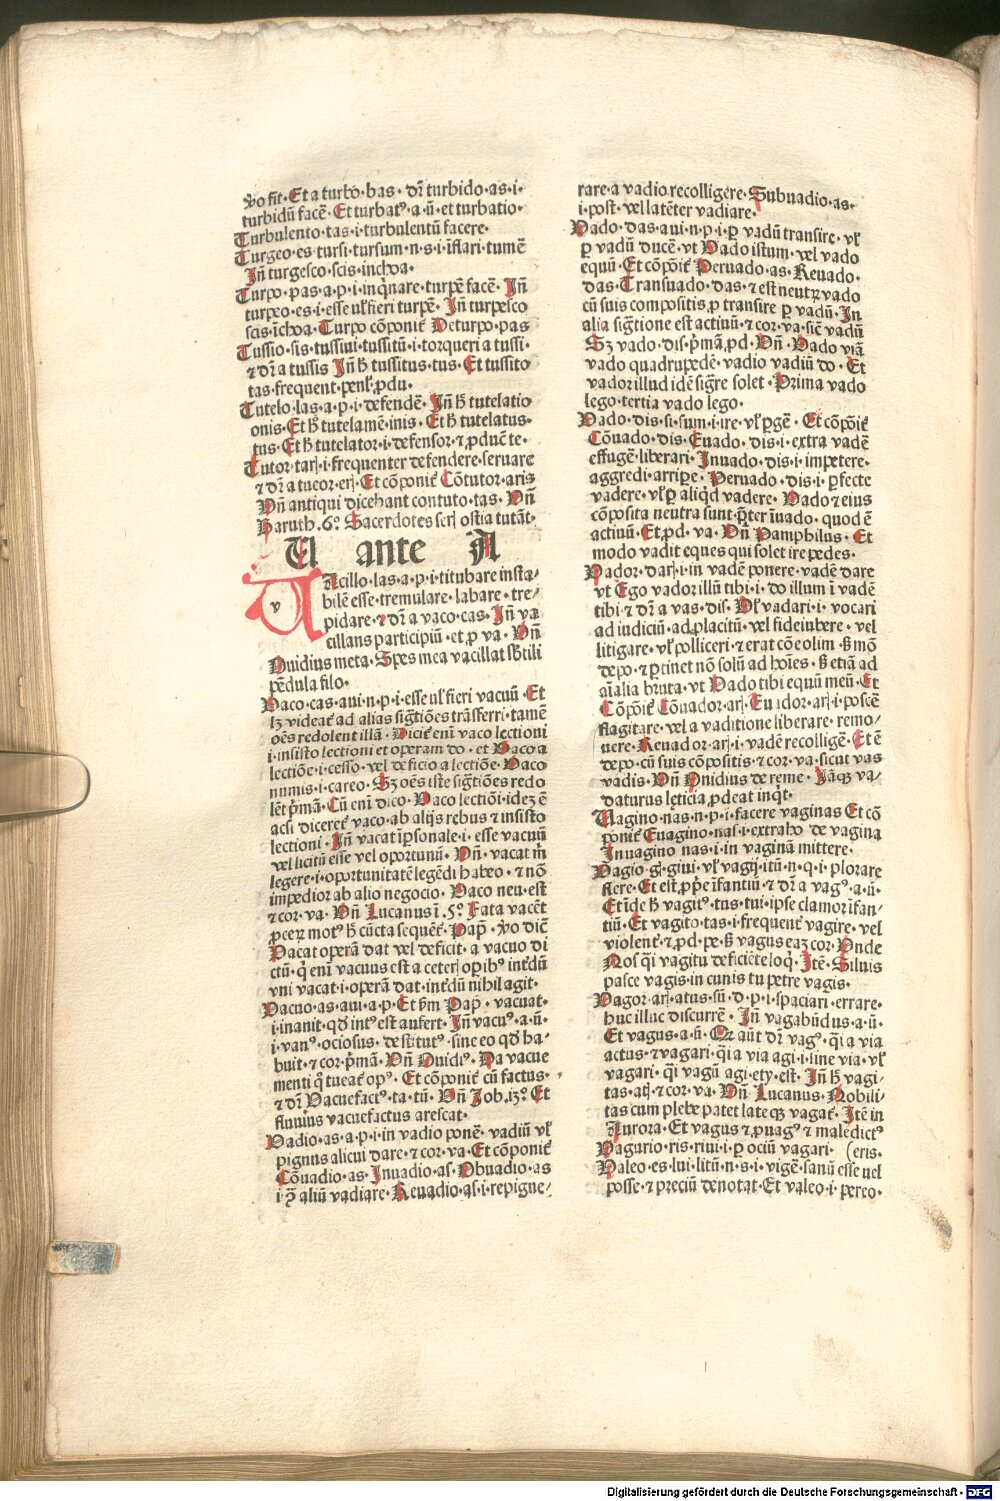 ꝟo fit. Et a turbo.bas. dr̄ turbido.as.i.
turbidū facē. Et turbatꝰ.a.ū.et turbatio.
Turbulento.tas.i.turbulentū facere.
Turgeo.es.tursi.tursum.n.s.i.īflari.tumē
Jn̄ turgesco.scis.inchoa.
Turpo.pas.a.p.i.inq̇nare.turpē facē. Jn̄
turpeo.es.i.esse ul̓ fieri turpē. Jn̄ turpesco
scis.īchoa. Turpo cōponit̄ Deturpo.pas
Tussio.sis.tussiui.tussitū.i.torqueri a tussi.
⁊ dr̄ a tussis Jn̄ h̄ tussitus.tus. Et tussito
tas.frequent.penl̓.ꝓdu.
Tutelo.las.a.p.i.defendē. Jn̄ h̄ tutelatio
onis. Et h̄ tutelamē.inis. Et h̄ tutelatus.
tus. Et h̄ tutelator.i.defensor.⁊ ꝓduc̄ te.
Tutor.tarꝭ.i.frequenter defendere.seruare
⁊ dr̄ a tueor.erꝭ. Et cōponit̄ Cōtutor.aris
Vn̄ antiqui dicebant contuto.tas. Vn̄
Baruth.6º. Sacerdotes serꝭ ostia tutāt.
U ante A
v
Acillo.las.a.p.i.titubare insta/
bilē esse.tremulare.labare.tre/
pidare.⁊ dr̄ a vaco.cas. Jn̄ va
cillans participiū.et ꝓ va. Vn̄
Ouidius meta. Spes mea vacillat sb̄tili
pēdula filo.
Vaco.cas.aui.n.p.i.esse ul̓ fieri vacuū. Et
lꝫ videat̄ ad alias sigt̄iōes trāsferri.tamē
oēs redolent illā. Dicit̄ enī vaco lectioni
i.insisto lectioni et operam do. et Vaco a
lectiōe.i.cesso.vel deficio a lectiōe. Vaco
nummis.i.careo. Sꝫ oēs iste sigt̄iōes redo
lēt p̄mā. Cū enī dico. Vaco lectiōi.idē ē
acsi dicerēt vaco.ab alijs rebus ⁊ insisto
lectioni. Jn̄ vacat īpersonale.i.esse vacuū
vel licitū esse vel oportunū. Vn̄. vacat m̄
legere.i.oportunitatē legēdi habeo.⁊ nō
impedior ab alio negocio. Vaco neu.est
⁊ cor.va. Vn̄ Lucanus ī.5º. Fata vacēt
ꝓcerꝝ motꝰ h̄ cūcta sequēt̄. Pap̄. ꝟo dic̄
Vacat operā dat vel deficit.a vacuo di
ctū.q̇ enī vacuus est a ceterꝭ op̄ibꝰ int̄dū
vni vacat.i.operā dat.int̄dū nihil agit.
Vacuo.as.aui.a.p. Et s̄m Pap̄. vacuat.
i.inanit.qd̄ intꝰ est aufert. Jn̄ vacuꝰ.a.ū.
i.vanꝰ.ociosus.destitutꝰ.sine eo qd̄ ha/
buit.⁊ cor.p̄mā. Vn̄ Ouidiꝰ. Da vacue
menti q̊ tueat̄ opꝰ. Et cōponit̄ cū factus.
⁊ dr̄ Vacuefactꝰ.ta.tū. Vn̄ Job.13º. Et
fluuius vacuefactus arescat.
Vadio.as.a.p.i.in vadio ponē. vadiū ul̓
pignus alicui dare.⁊ cor.va. Et cōponit̄
Cōuadio.as. Jnuadio.as. Obuadio.as
i.ꝯ̄ aliū vadiare. Reuadio.as.i.repigne/
rare.a vadio recolligere. Subuadio.as.
i.post.vel latēter vadiare.
Vado.das.aui.n.p.i.ꝑ vadū transire.ul̓
ꝑ vadū ducē.vt Vado istum.vel vado
equū. Et cōpōit̄ Peruado.as. Reuado.
das. Transuado.das.⁊ est neutꝝ vado
cū suis compositis.ꝓ transire ꝑ vadū. In
alia sigt̄ione est actiuū.⁊ cor.va.sic̄ vadū
Sꝫ vado.dis.p̄mā ꝓd. Vn̄. Vado viā
vado quadrupedē.vadio vadiū do. Et
vador illud idē sigr̄e solet. Prima vado
lego.tertia vado lego.
Vado.dis.si.sum.i.ire.ul̓ ꝑgē. Et cōpōit̄
Cōuado.dis. Euado.dis.i.extra vadē
effugē.liberari. Jnuado.dis.i.impetere.
aggredi.arriꝑe. Peruado.dis.i.ꝑfecte
vadere.ul̓ ꝑ aliq̇d vadere. Vado ⁊ eius
cōposita neutra sunt.p̄ter īuado.quod ē
actiuū. Et ꝓd.va. Vn̄ Pamphilus. Et
modo vadit eques qui solet ire pedes.
Vador.darꝭ.i.in vadē ponere.vadē dare
vt Ego vador illū tibi.i.do illum ī vadē
tibi.⁊ dr̄ a vas.dis. Ul̓ vadari.i.vocari
ad iudiciū.ad placitū.vel fideiubere.vel
litigare.ul̓ polliceri.⁊ erat cōe olim.s̄ mō
depo.⁊ ꝑtinet nō solū ad hoīes.s̄ etiā ad
aīalia bruta.vt Vado tibi equū meū. Et
Cōpōit̄ Cōuador.arꝭ. Euador.arꝭ.i.poscē
flagitare.vel a vaditione liberare.remo/
uere. Reuador.arꝭ.i.vadē recolligē. Et ē
depo.cū suis cōpositis.⁊ cor.va.sicut vas
vadis. Vn̄ Ouidius de reme. Jāqꝫ va/
daturus leticia ꝓdeat inq̇t.
Vagino.nas.n.p.i.facere vaginas Et cō
ponit̄ Euagino.nas.i.extraho de vagina
Jnuagino.nas.i.in vaginā mittere.
Vagio.gꝭ.giui.ul̓ vagij.itū.n.q.i.plorare
flere. Et est ꝓp̄e īfantiū.⁊ dr̄ a vagꝰ.a.ū.
Et īde h̄ vagitꝰ.tus.tui.ipse clamor īfan/
tiū. Et vagito.tas.i.frequent̄ vagire.vel
violent̄.⁊ ꝓd.pe.s̄ vagus eaꝫ cor. Vnde
Nos q̇i vagitu deficiēte loq̇. Jtē. Siluis
pasce vagis.in cunis tu petre vagis.
Vagor.arꝭ.atus.sū.d.p.i.spaciari.errare.
huc illuc discurrē. Jn̄ vagabūdus.a.ū.
Et vagus.a.ū. Qꝛ aut dr̄ vagꝰ.q̇i a via
actus.⁊ vagari.q̇i a via agi.i.sine via.ul̓
vagari.q̇i vagū agi.ety.est. Jn̄ h̄ vagi/
tas.atꝭ.⁊ cor.va. Vn̄ Lucanus. Nobili/
tas cum plebe patet lateqꝫ vagat̄. Jtē in
Aurora. Et vagus ⁊ ꝓuagꝰ ⁊ maledictꝰ
Vagurio.ris.riui.i.ꝑ ociū vagari. (eris.
Valeo.es.lui.litū.n.s.i.vigē.sanū esse uel
posse.⁊ preciū denotat. Et valeo.i.pereo.
Digitalisierung gefördert durch die Deutsche Forschungsgemeinschaft - DFG